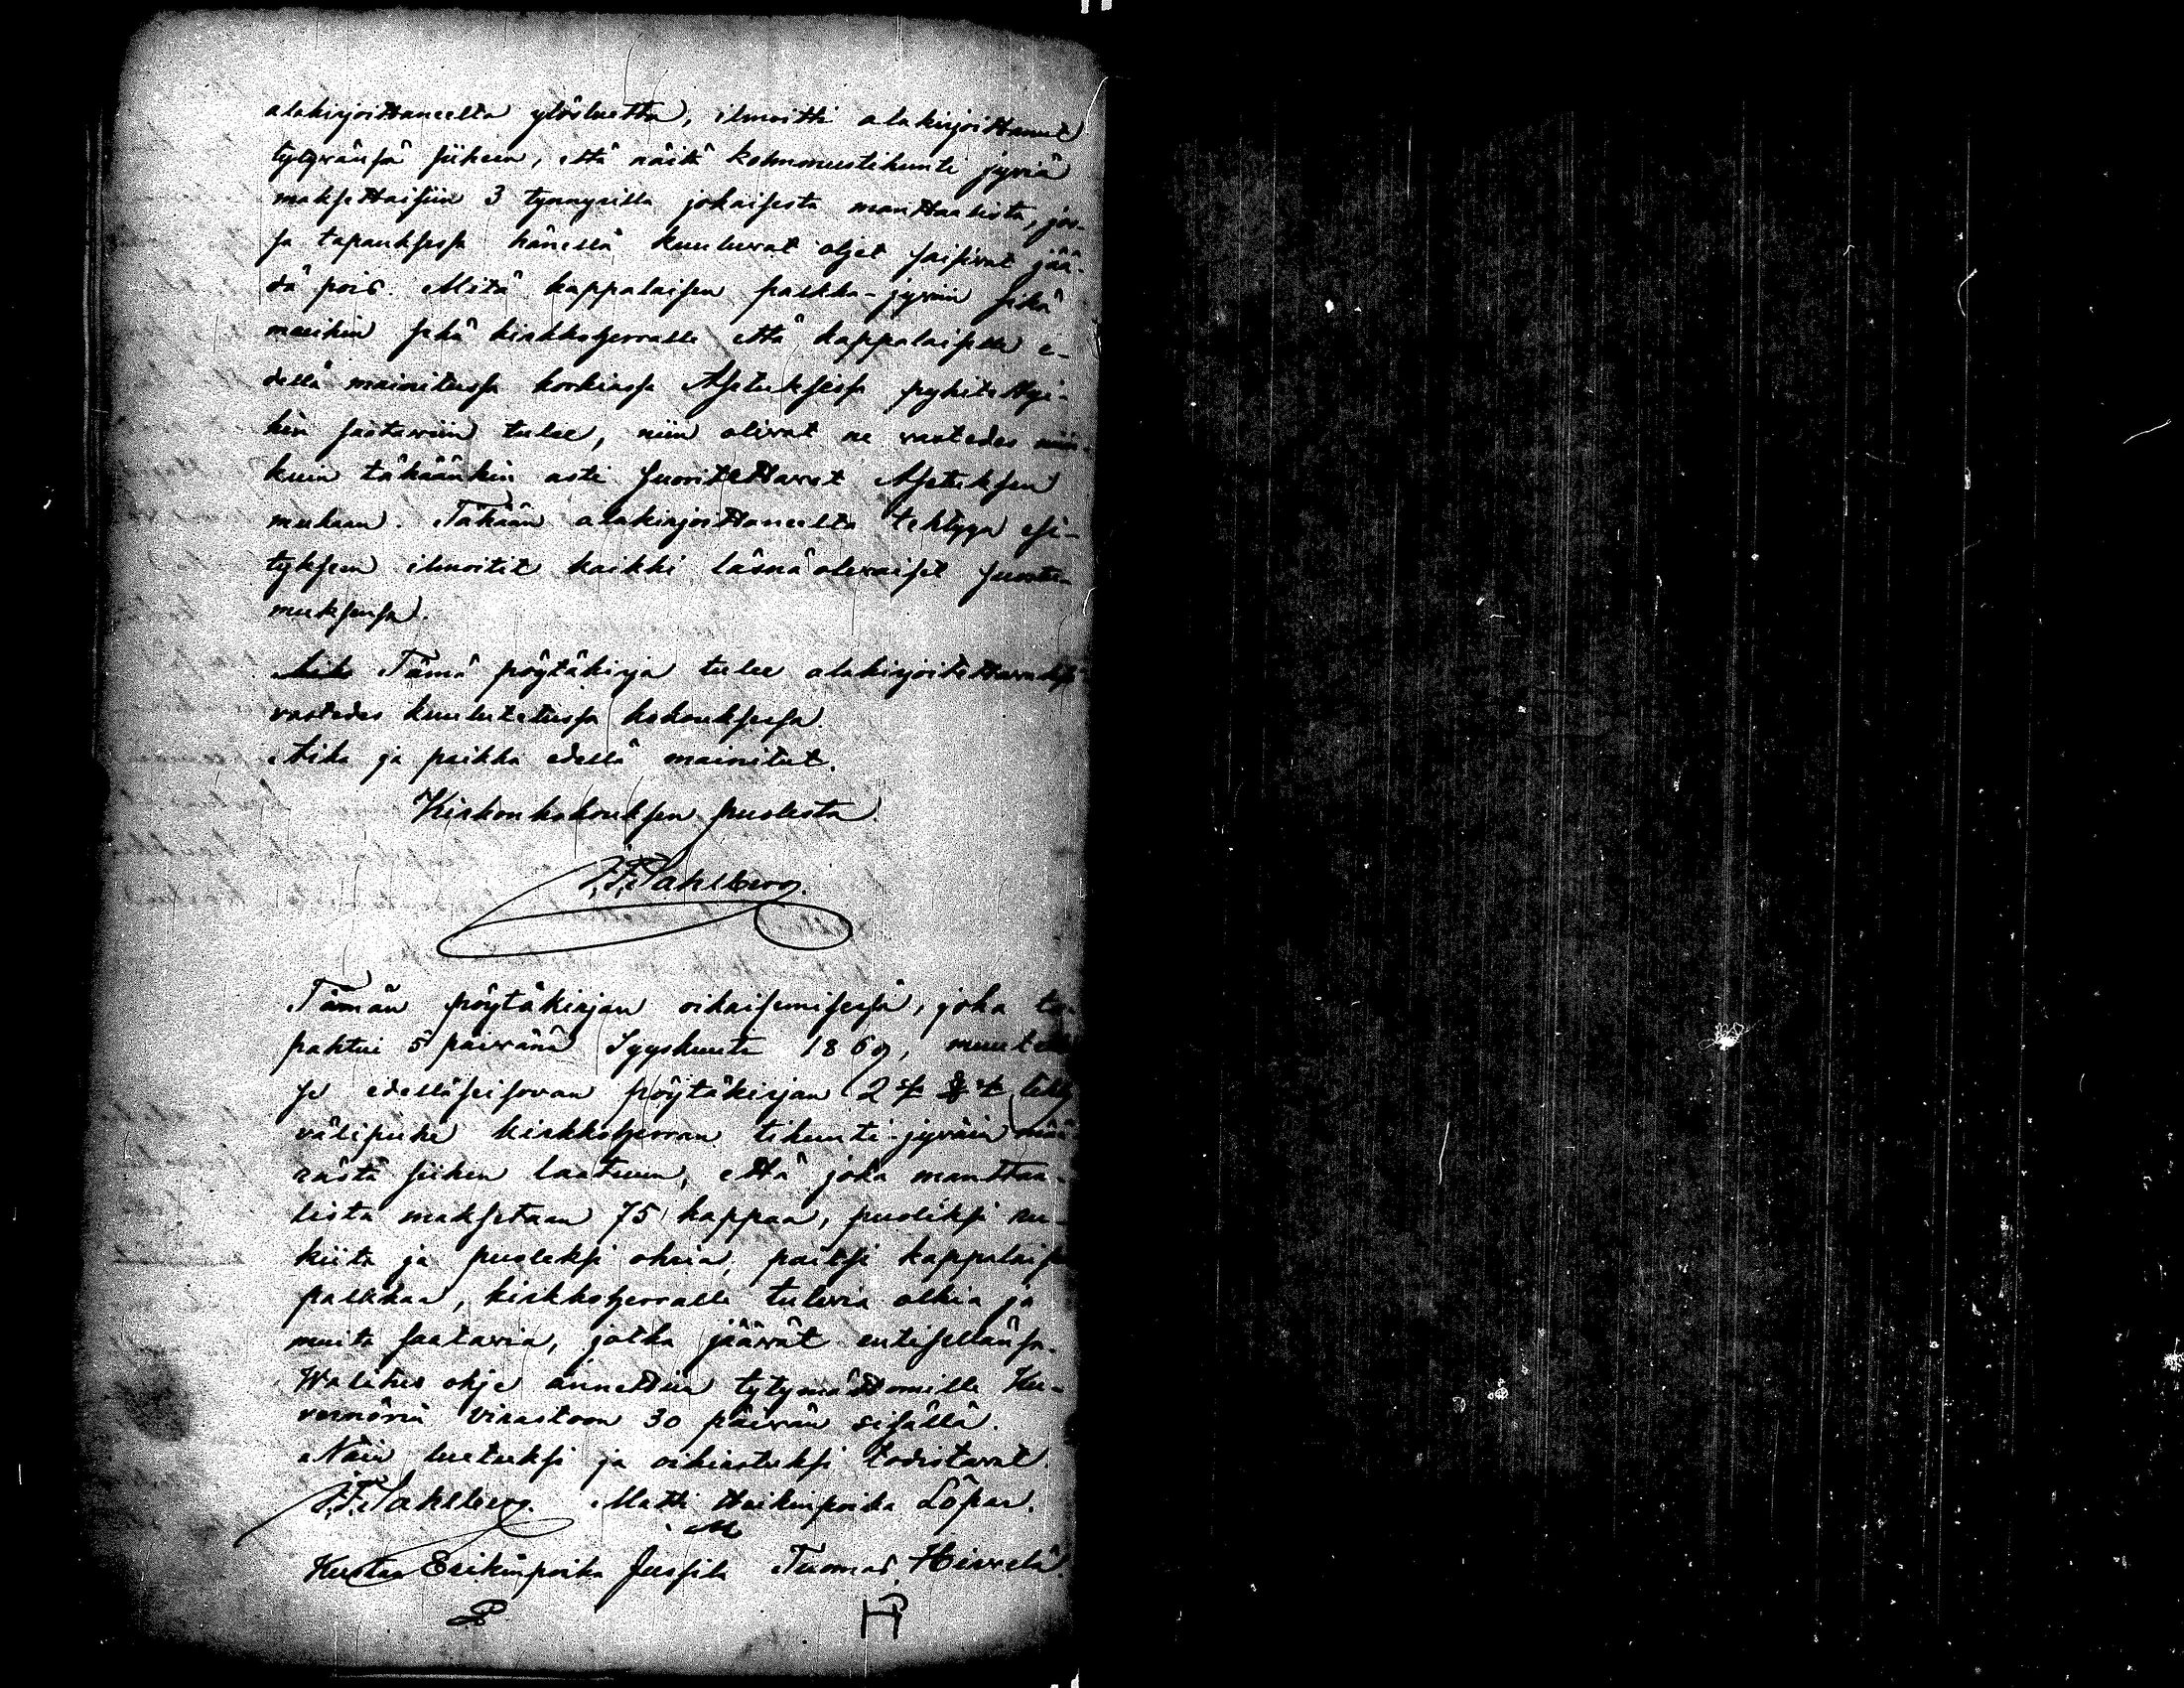 alakirjoittaneelta ylösluettu, ilmoitti alakirjoittanut
tytyvänsä siihen, että näitä kolmonustikunti jyviä
maksettaisiin 3 tynnyrillä jokaisesta manttaalista, jos-
sa tapauksessa hänellä kuuluvat oljet saisivat jää-
dä pois. Mitä kappalaisen palkka-jyviin sekä
muihin sekä kirkkoherralle että kappalaiselle e-
dellä mainitussa korkiassa Asetuksessa pykitettyi-
hin saataviin tulee, niin olivat ne vastedes niin-
kuin tähäänkin asti suoritettavat Asetuksen
mukaan. Tähän alakirjoittaneelta tehtyyn esi-
tykseen ilmoitit kaikki läsnä olevaiset suostu-
muksensa.
Tämä pöytäkirja tulee alakirjoitettavaksi
vastedes kuulutetussa kokouksessa.
Aika ja paikka edellä mainitut.
Kirkonkokouksen puolesta
J. F. Sahlberg.
Tämän pöytäkirjan oikaisemisessa, joka ta-
pahtui 5 päivänä Syyskuuta 1869, muutettiin
se edelläseisovan pöytäkirjan 2 § tehty
välipuhe kirkkoherran tikunti-jyväin mää-
rästä siihen laatuun, että joka manttaa-
lista maksetaan 75 kappaa, puoleksi ru-
kiita ja puoleksi ohria, paitsi kappalaisen
palkkaa, kirkkoherralle tulevia olkia ja
muita saatavia, jotka jäävät entisellänsä.
Walitus ohje annettiin tytymättömille Ku-
vernörin virastoon 30 päivän sisällä.
Näin luetuksi ja oikiastuksi todistavat
J. F. Sahlberg. Matti Heikinpoika Löpar.
M
Kustaa Erikinpoika Jussila Tuomas Hirvelä.